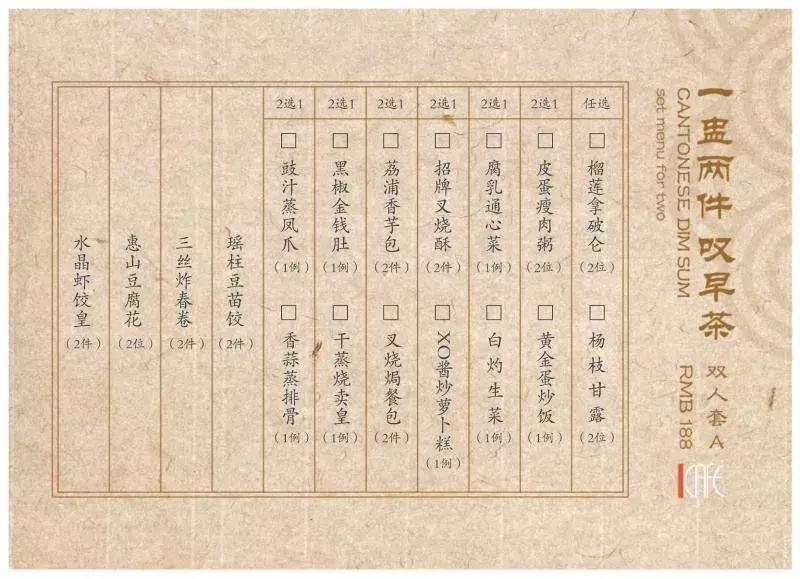 一盅两件叹早茶
CANTONESE DIM SUM
set menu for two
双人套A
RMB 188
CAFE
任选
□ 榴莲拿破仑(2位)
□ 杨枝甘露(2位)
2选1
□ 皮蛋瘦肉粥(2位)
□ 黄金蛋炒饭(1例)
2选1
□ 腐乳通心菜(1例)
□ 白灼生菜(1例)
2选1
□ 招牌叉烧酥(2件)
□ XO酱炒萝卜糕(1例)
2选1
□ 荔浦香芋包(2件)
□ 叉烧焗餐包(2件)
2选1
□ 黑椒金钱肚(1例)
□ 干蒸烧卖皇(1例)
2选1
□ 豉汁蒸凤爪(1例)
□ 香蒜蒸排骨(1例)
瑶柱豆苗饺(2件)
三丝炸春卷(2件)
惠山豆腐花(2位)
水晶虾饺皇(2件)